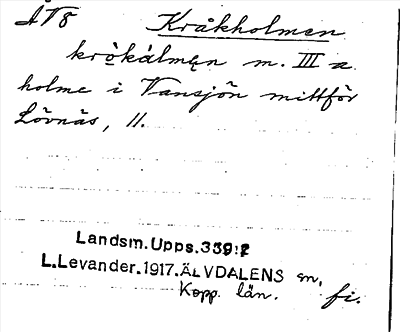 ÅT8 Kråkholmen
kròkálmęn m. III a
holme i Vansjön mittför
Lövnäs, 11.
Landsm. Upps. 339:2
L. Levander. 1917. ÄLVDALENS sn,
Kopp. län. fi.